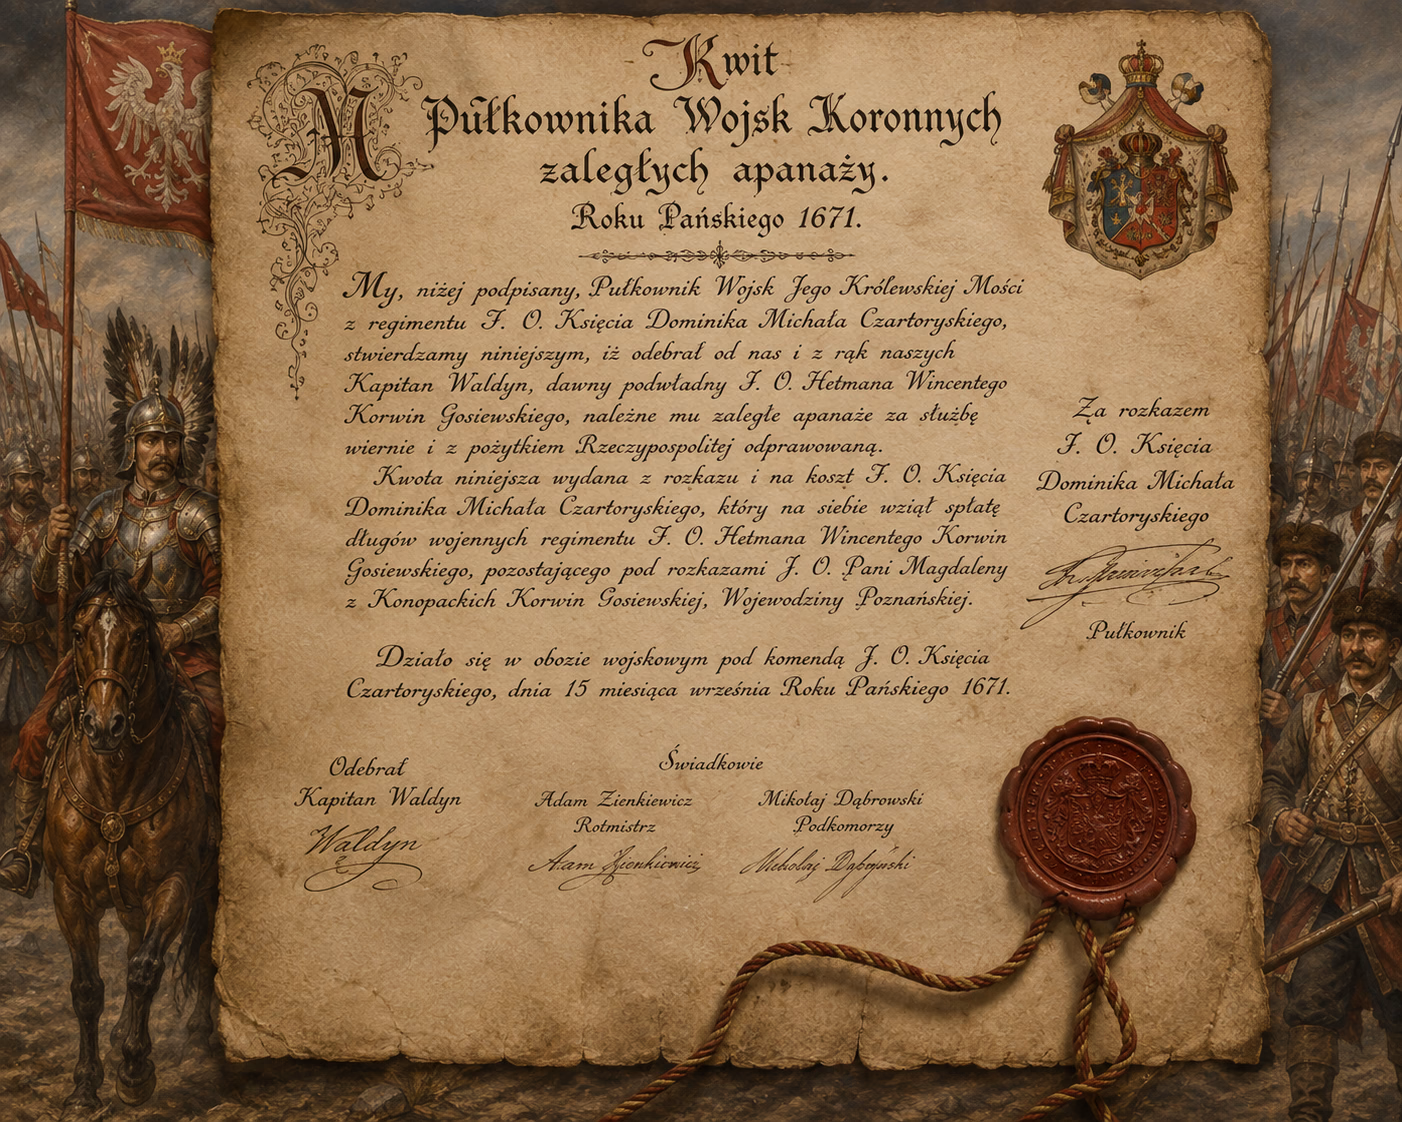 M
Kwit
Pułkownika Wojsk Koronnych
zaległych apanaży.
Roku Pańskiego 1671.
My, niżej podpisany, Pułkownik Wojsk Jego Królewskiej Mości
z regimentu J. O. Księcia Dominika Michała Czartoryskiego,
stwierdzamy niniejszym, iż odebrał od nas i z rąk naszych
Kapitan Waldyn, dawny podwładny J. O. Hetmana Wincentego
Korwin Gosiewskiego, należne mu zaległe apanaże za służbę
wiernie i z pożytkiem Rzeczypospolitej odprawowaną.
Kwota niniejsza wydana z rozkazu i na koszt J. O. Księcia
Dominika Michała Czartoryskiego, który na siebie wziął spłatę
długów wojennych regimentu J. O. Hetmana Wincentego Korwin
Gosiewskiego, pozostającego pod rozkazami J. O. Pani Magdaleny
z Konopackich Korwin Gosiewskiej, Wojewodziny Poznańskiej.
Działo się w obozie wojskowym pod komendą J. O. Księcia
Czartoryskiego, dnia 15 miesiąca września Roku Pańskiego 1671.
Za rozkazem
J. O. Księcia
Dominika Michała
Czartoryskiego
Pułkownik
Odebrał
Kapitan Waldyn
Waldyn
Świadkowie
Adam Zienkiewicz
Rotmistrz
Mikołaj Dąbrowski
Podkomorzy